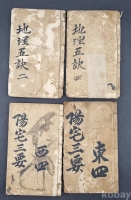 地理五訣 二
地理五訣 四
陽宅三要 西四
陽宅三要 東四
kobay